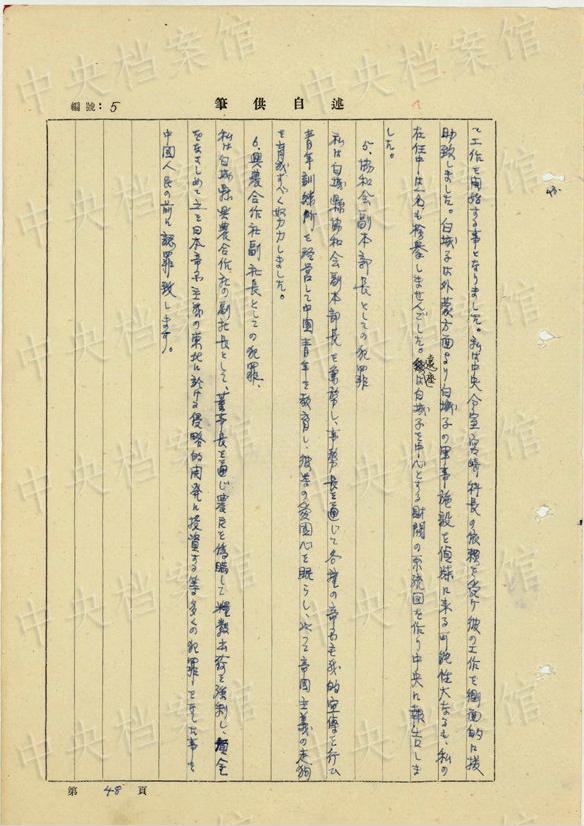 編號：5
述自供筆
て工作を開始する事となりました。私は中央分室宮崎科長の依頼を受け彼の工作を側面的に援
助致しました。白城子は外蒙方面より白城子の軍事施設を偵諜に来る可能性大なるも、私の
在任中は一名も検挙しませんでした。還は白城子を中心とする財閥の系統図を作り中央に報告しま
した。
5、協和会副本部長としての犯罪
私は白城縣協和会副本部長を兼務し、事務長を通じて各種の帝国主義的宣傳を行ひ
青年訓練所を経営して中国青年を教育し、彼等の愛国心を眠らし、以って帝国主義の走狗
を育成すべく努力しました。
6、興農合作社副社長としての犯罪、
私は白城縣興農合作社の副社長として、董事長を通じ農民を偽瞞して糧穀出荷を強制し、資金
をなさしめて之を日本帝国主義の東北に於ける侵略的開発に投資する等多くの犯罪をなした事を
中国人民の前に認罪致します。
第48頁
中央档案馆